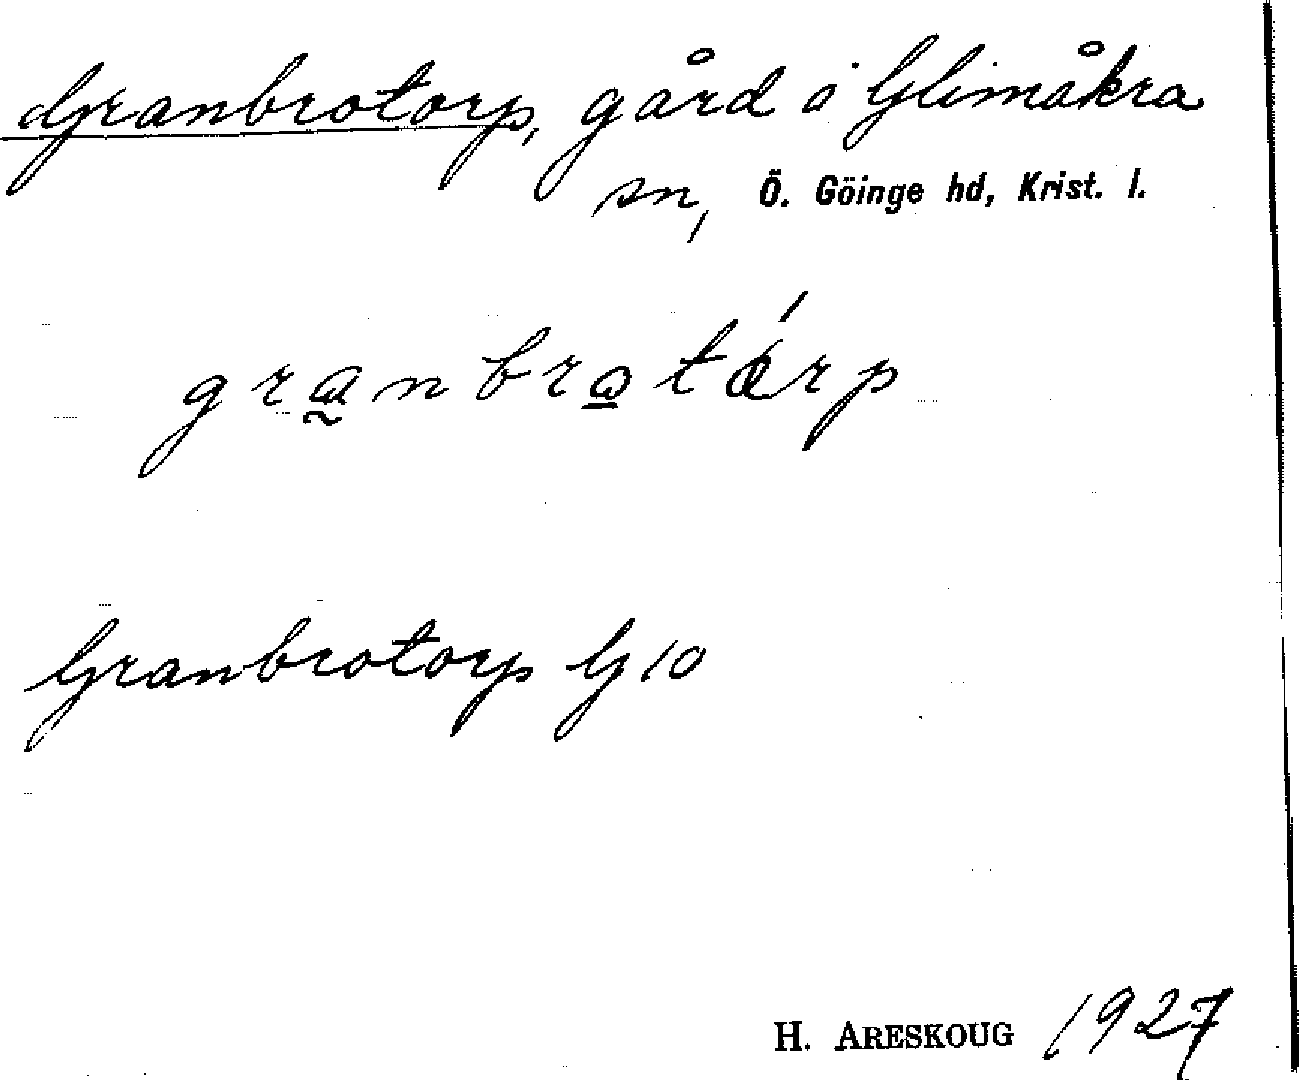 Granbrotorp, gård i Glimåkra
sn, Ö. Göinge hd, Krist. l.
granbrotǽrp
Granbrotorp G 10
H. ARESKOUG 1927